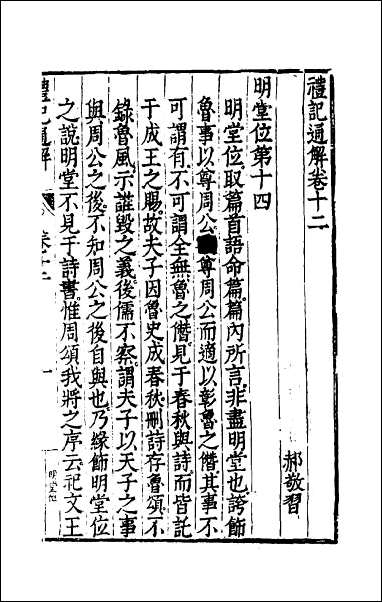 禮記通解卷十二
郝敬習
明堂位第十四
明堂位取篇首語命篇篇內所言非盡明堂也誇飾
魯事以尊周公尊周公而適以彰魯之僭其事不
可謂有不可謂全無魯之僭見于春秋與詩而皆託
于成王之賜故夫子因魯史成春秋刪詩存魯頌不
錄魯風示誰毀之義後儒不察謂夫子以天子之事
與周公之後不知周公之後自與也乃緣飾明堂位
之說明堂不見于詩書惟周頌我將之序云祀文王
禮記通解
卷十二
一
明堂位